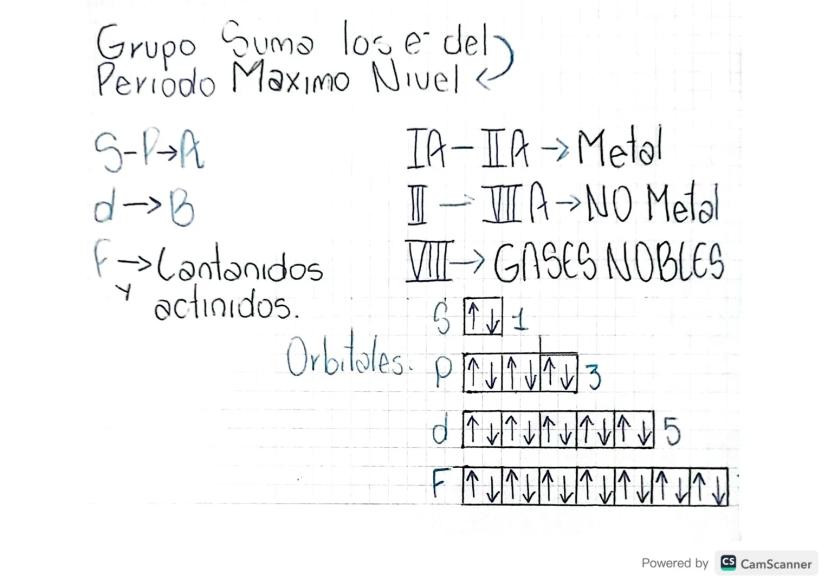 Grupo Suma los e⁻ del
Periodo Maximo Nivel
S-P→A
d→B
F→Lantanidos
y actinidos.
IA-IIA→Metal
III-VIIA→NO Metal
VIII→GASES NOBLES
Orbitales.
S ↑↓ 1
P ↑↓ ↑↓ ↑↓ 3
d ↑↓ ↑↓ ↑↓ ↑↓ ↑↓ 5
F ↑↓ ↑↓ ↑↓ ↑↓ ↑↓ ↑↓ ↑↓
Powered by CS CamScanner